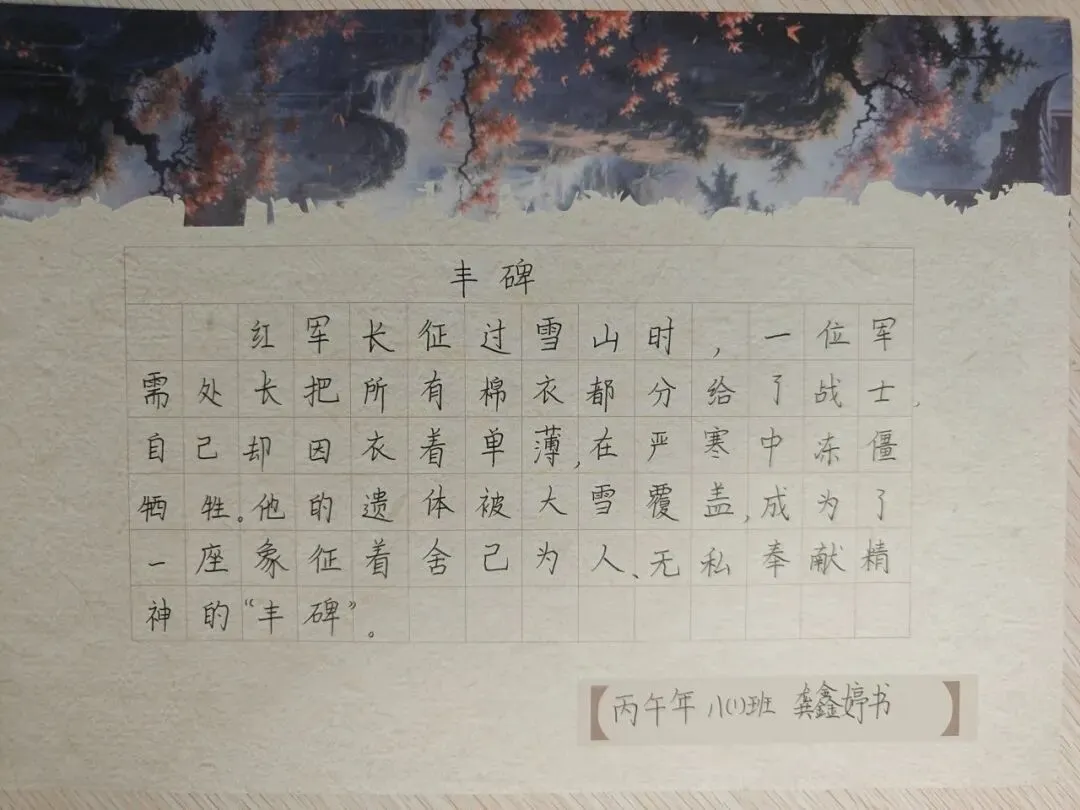 丰碑
红军长征过雪山时，一位军
需处长把所有棉衣都分给了战士，
自己却因衣着单薄，在严寒中冻僵
牺牲。他的遗体被大雪覆盖，成为了
一座象征着舍己为人、无私奉献精
神的“丰碑”。
丙午年 八(1)班 龚鑫婷书